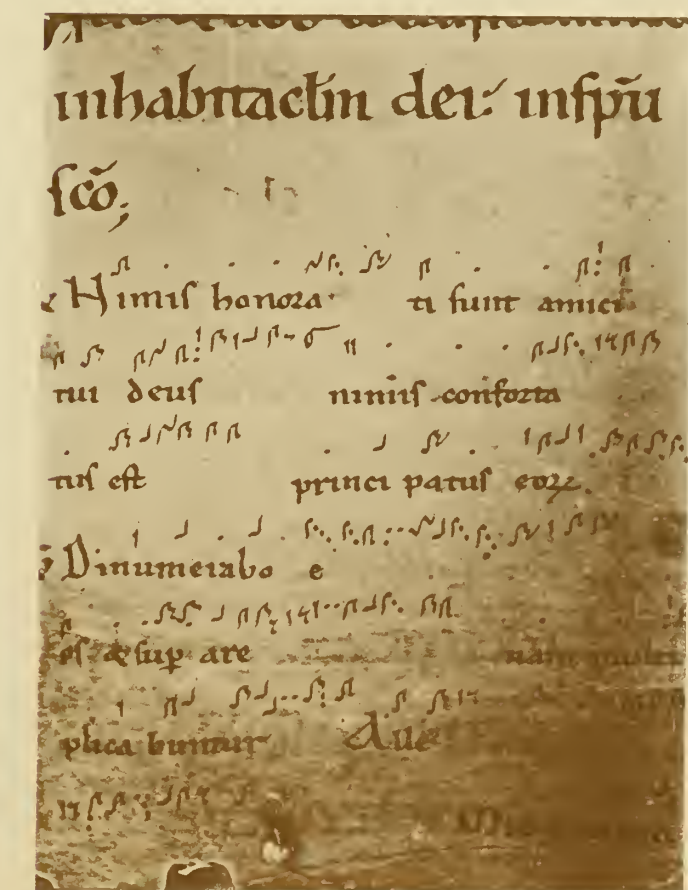 inhabitact̄in dei: inspū
sc̄o;
Nimis honora ti sunt amici
tui deus nimis conforta
tus est princi patus eoꝝ.
Dinumerabo e
os & suꝑ are nam multi
plica buntur Alle